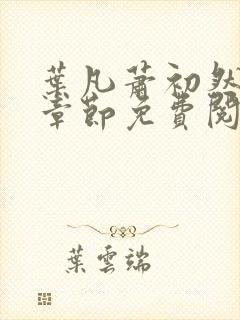 葉凡蕭初然
章節免費閱
葉雲端